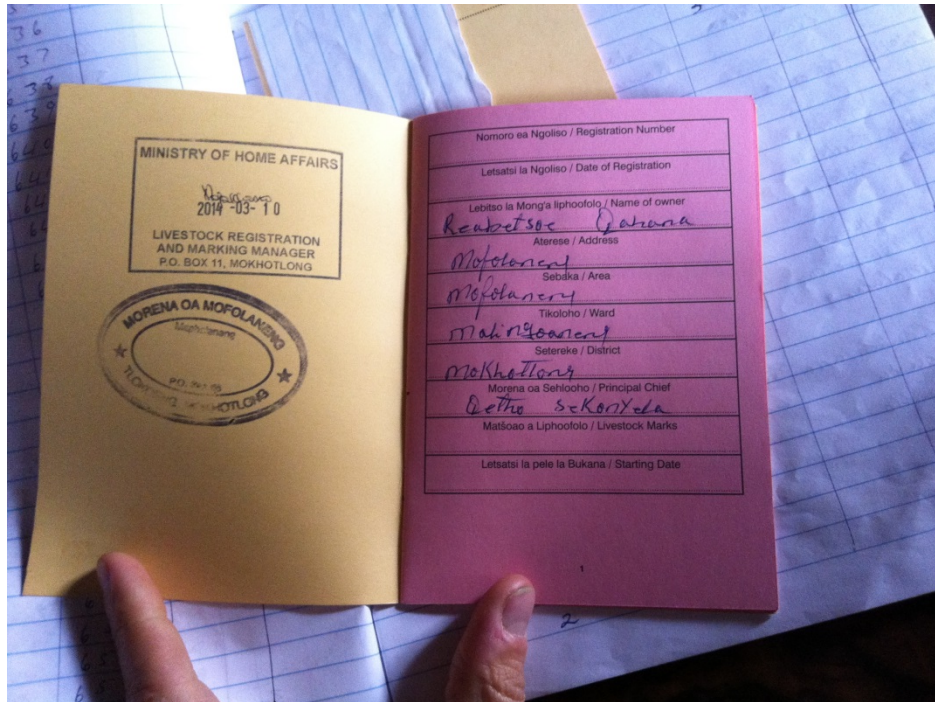 36
37
38
639
640
MINISTRY OF HOME AFFAIRS
2014 -03- 10
LIVESTOCK REGISTRATION
AND MARKING MANAGER
P.O. BOX 11, MOKHOTLONG
MORENA OA MOFOLANENG
Mopholaneng
MOKHOTLONG
Nomoro ea Ngoliso / Registration Number
Letsatsi la Ngoliso / Date of Registration
Lebitso la Mong'a liphoofolo / Name of owner
Reabetsoe
Aterese / Address
Mofolaneng
Sebaka / Area
Mofolaneng
Tikoloho / Ward
Malingoaneng
Setereke / District
Mokhotlong
Morena oa Sehlooho / Principal Chief
Qetho Sekonyela
Matšoao a Liphoofolo / Livestock Marks
Letsatsi la pele la Bukana / Starting Date
1
2